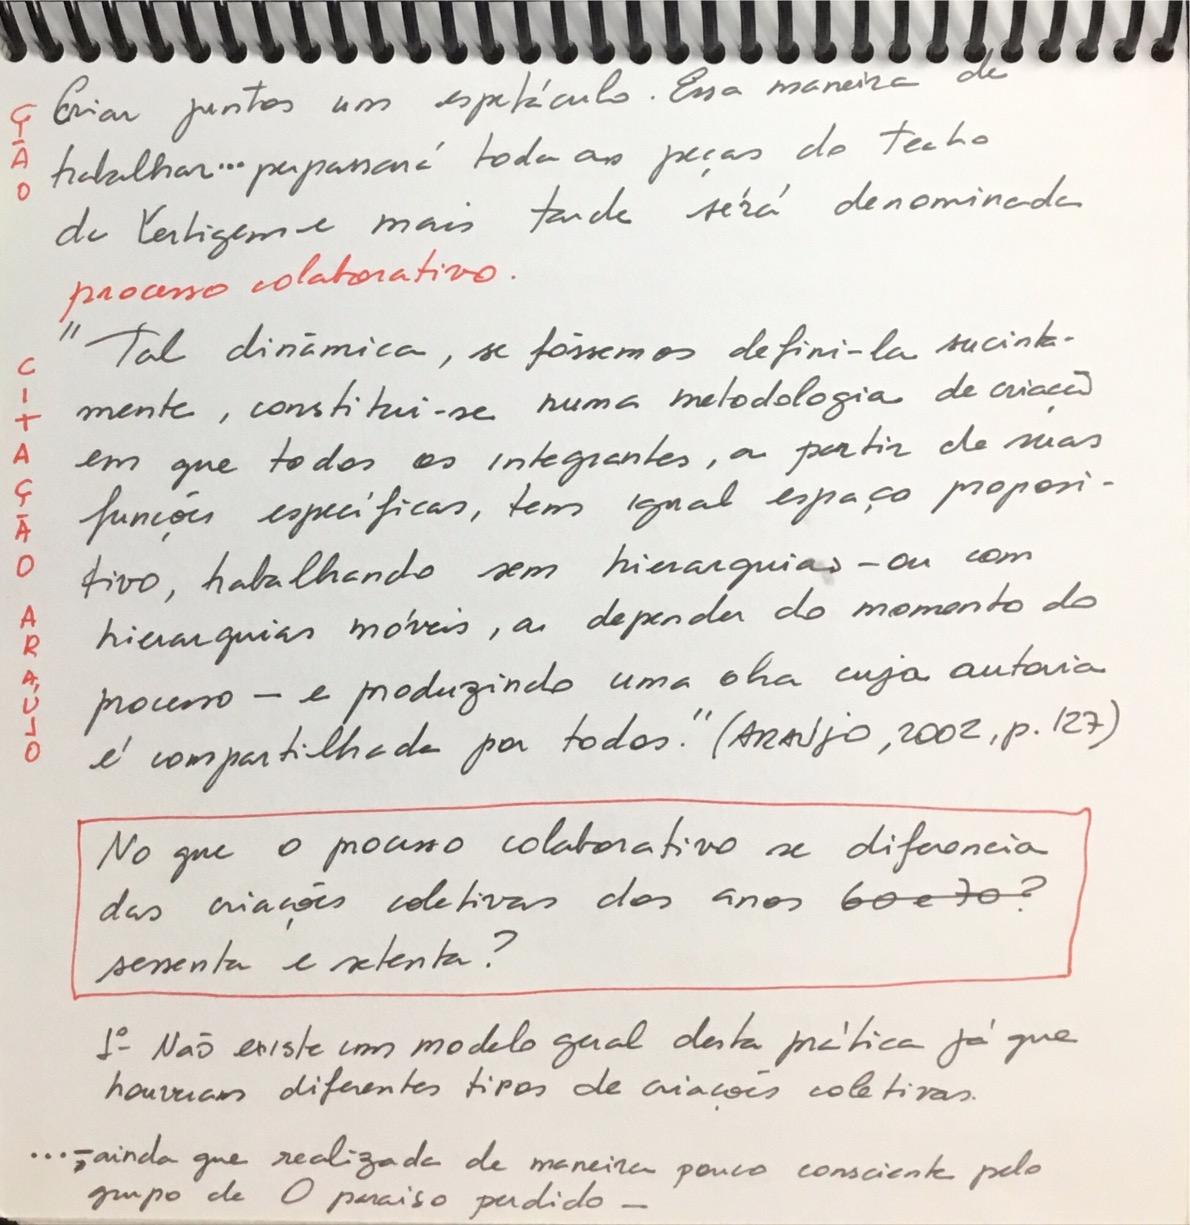 ÇÃO
Criar juntos um espetáculo. Essa maneira de
trabalhar... perpassará toda as peças do Teatro
da Vertigem e mais tarde será denominada
processo colaborativo.
CITAÇÃO ARAÚJO
"Tal dinâmica, se fôssemos defini-la sucinta-
mente, constitui-se numa metodologia de criação
em que todos os integrantes, a partir de suas
funções específicas, tem igual espaço proposi-
tivo, trabalhando sem hierarquias - ou com
hierarquias móveis, a depender do momento do
processo - e produzindo uma obra cuja autoria
é compartilhada por todos." (ARAÚJO, 2002, p. 127)
No que o processo colaborativo se diferencia
das criações coletivas dos anos 60 e 70?
sessenta e setenta?
1º- Não existe um modelo geral desta prática já que
houveram diferentes tipos de criações coletivas.
...; ainda que realizada de maneira pouco consciente pelo
grupo de O paraíso perdido -